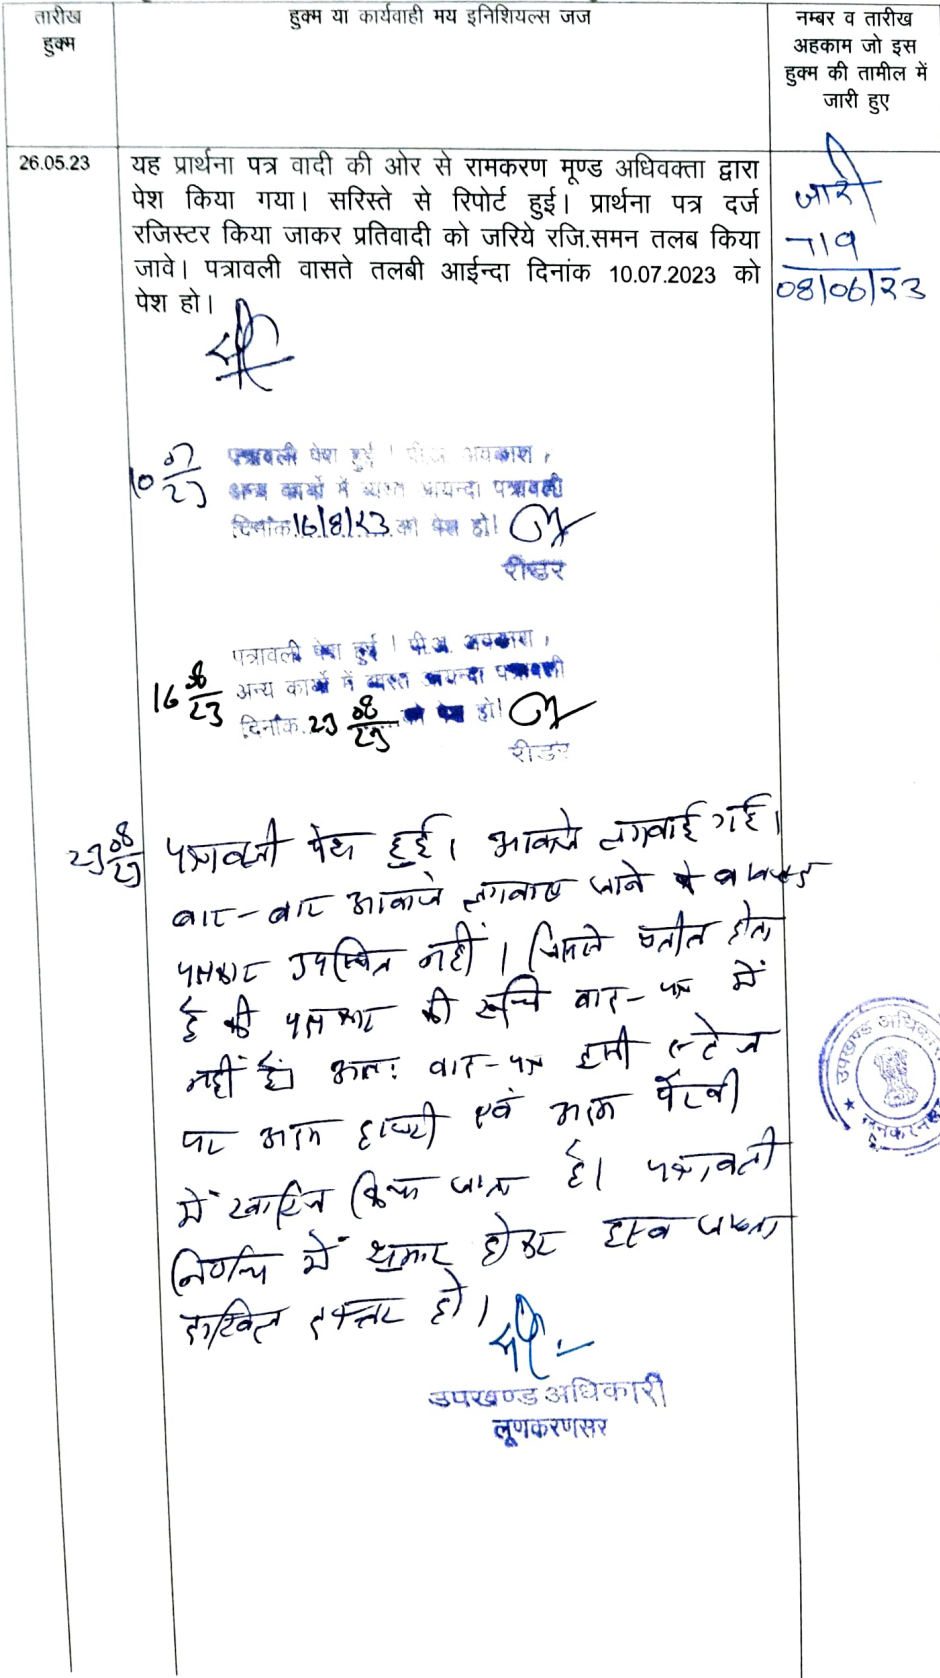 तारीख
हुक्म
हुक्म या कार्यवाही मय इनिशियल्स जज
नम्बर व तारीख
अहकाम जो इस
हुक्म की तामील में
जारी हुए
26.05.23
यह प्रार्थना पत्र वादी की ओर से रामकरण मूण्ड अधिवक्ता द्वारा
पेश किया गया। सरिस्ते से रिपोर्ट हुई। प्रार्थना पत्र दर्ज
रजिस्टर किया जाकर प्रतिवादी को जरिये रजि.समन तलब किया
जावे। पत्रावली वासते तलबी आईन्दा दिनांक 10.07.2023 को
पेश हो।
जारी
719
08/06/23
10 07/23
पत्रावली पेश हुई। पी.अ. अवकाश,
अन्य कार्यो में व्यस्त आयन्दा पत्रावली
दिनांक 16/8/23 को पेश हो।
रीडर
16 08/23
पत्रावली पेश हुई। पी.अ. अवकाश,
अन्य कार्यो में व्यस्त आयन्दा पत्रावली
दिनांक 23 08/23 को पेश हो।
रीडर
23 08/23
पत्रावली पेश हुई। आवाजे लगवाई गई।
बार-बार आवाजे लगवाए जाने के बावजूद
पक्षकार उपस्थित नहीं। जिससे प्रतीत होता
है की पक्षकार की रूचि वाद-पत्र में
नहीं है। अतः वाद-पत्र इसी स्टेज
पर अदम हाजरी एवं अदम पैरवी
में खारिज किया जाता है। पत्रावली
निर्णित में शुमार होकर हस्ब जाब्ता
दाखिल दफ्तर हो।
उपखण्ड अधिकारी
लूणकरणसर
उपखण्ड अधिकारी